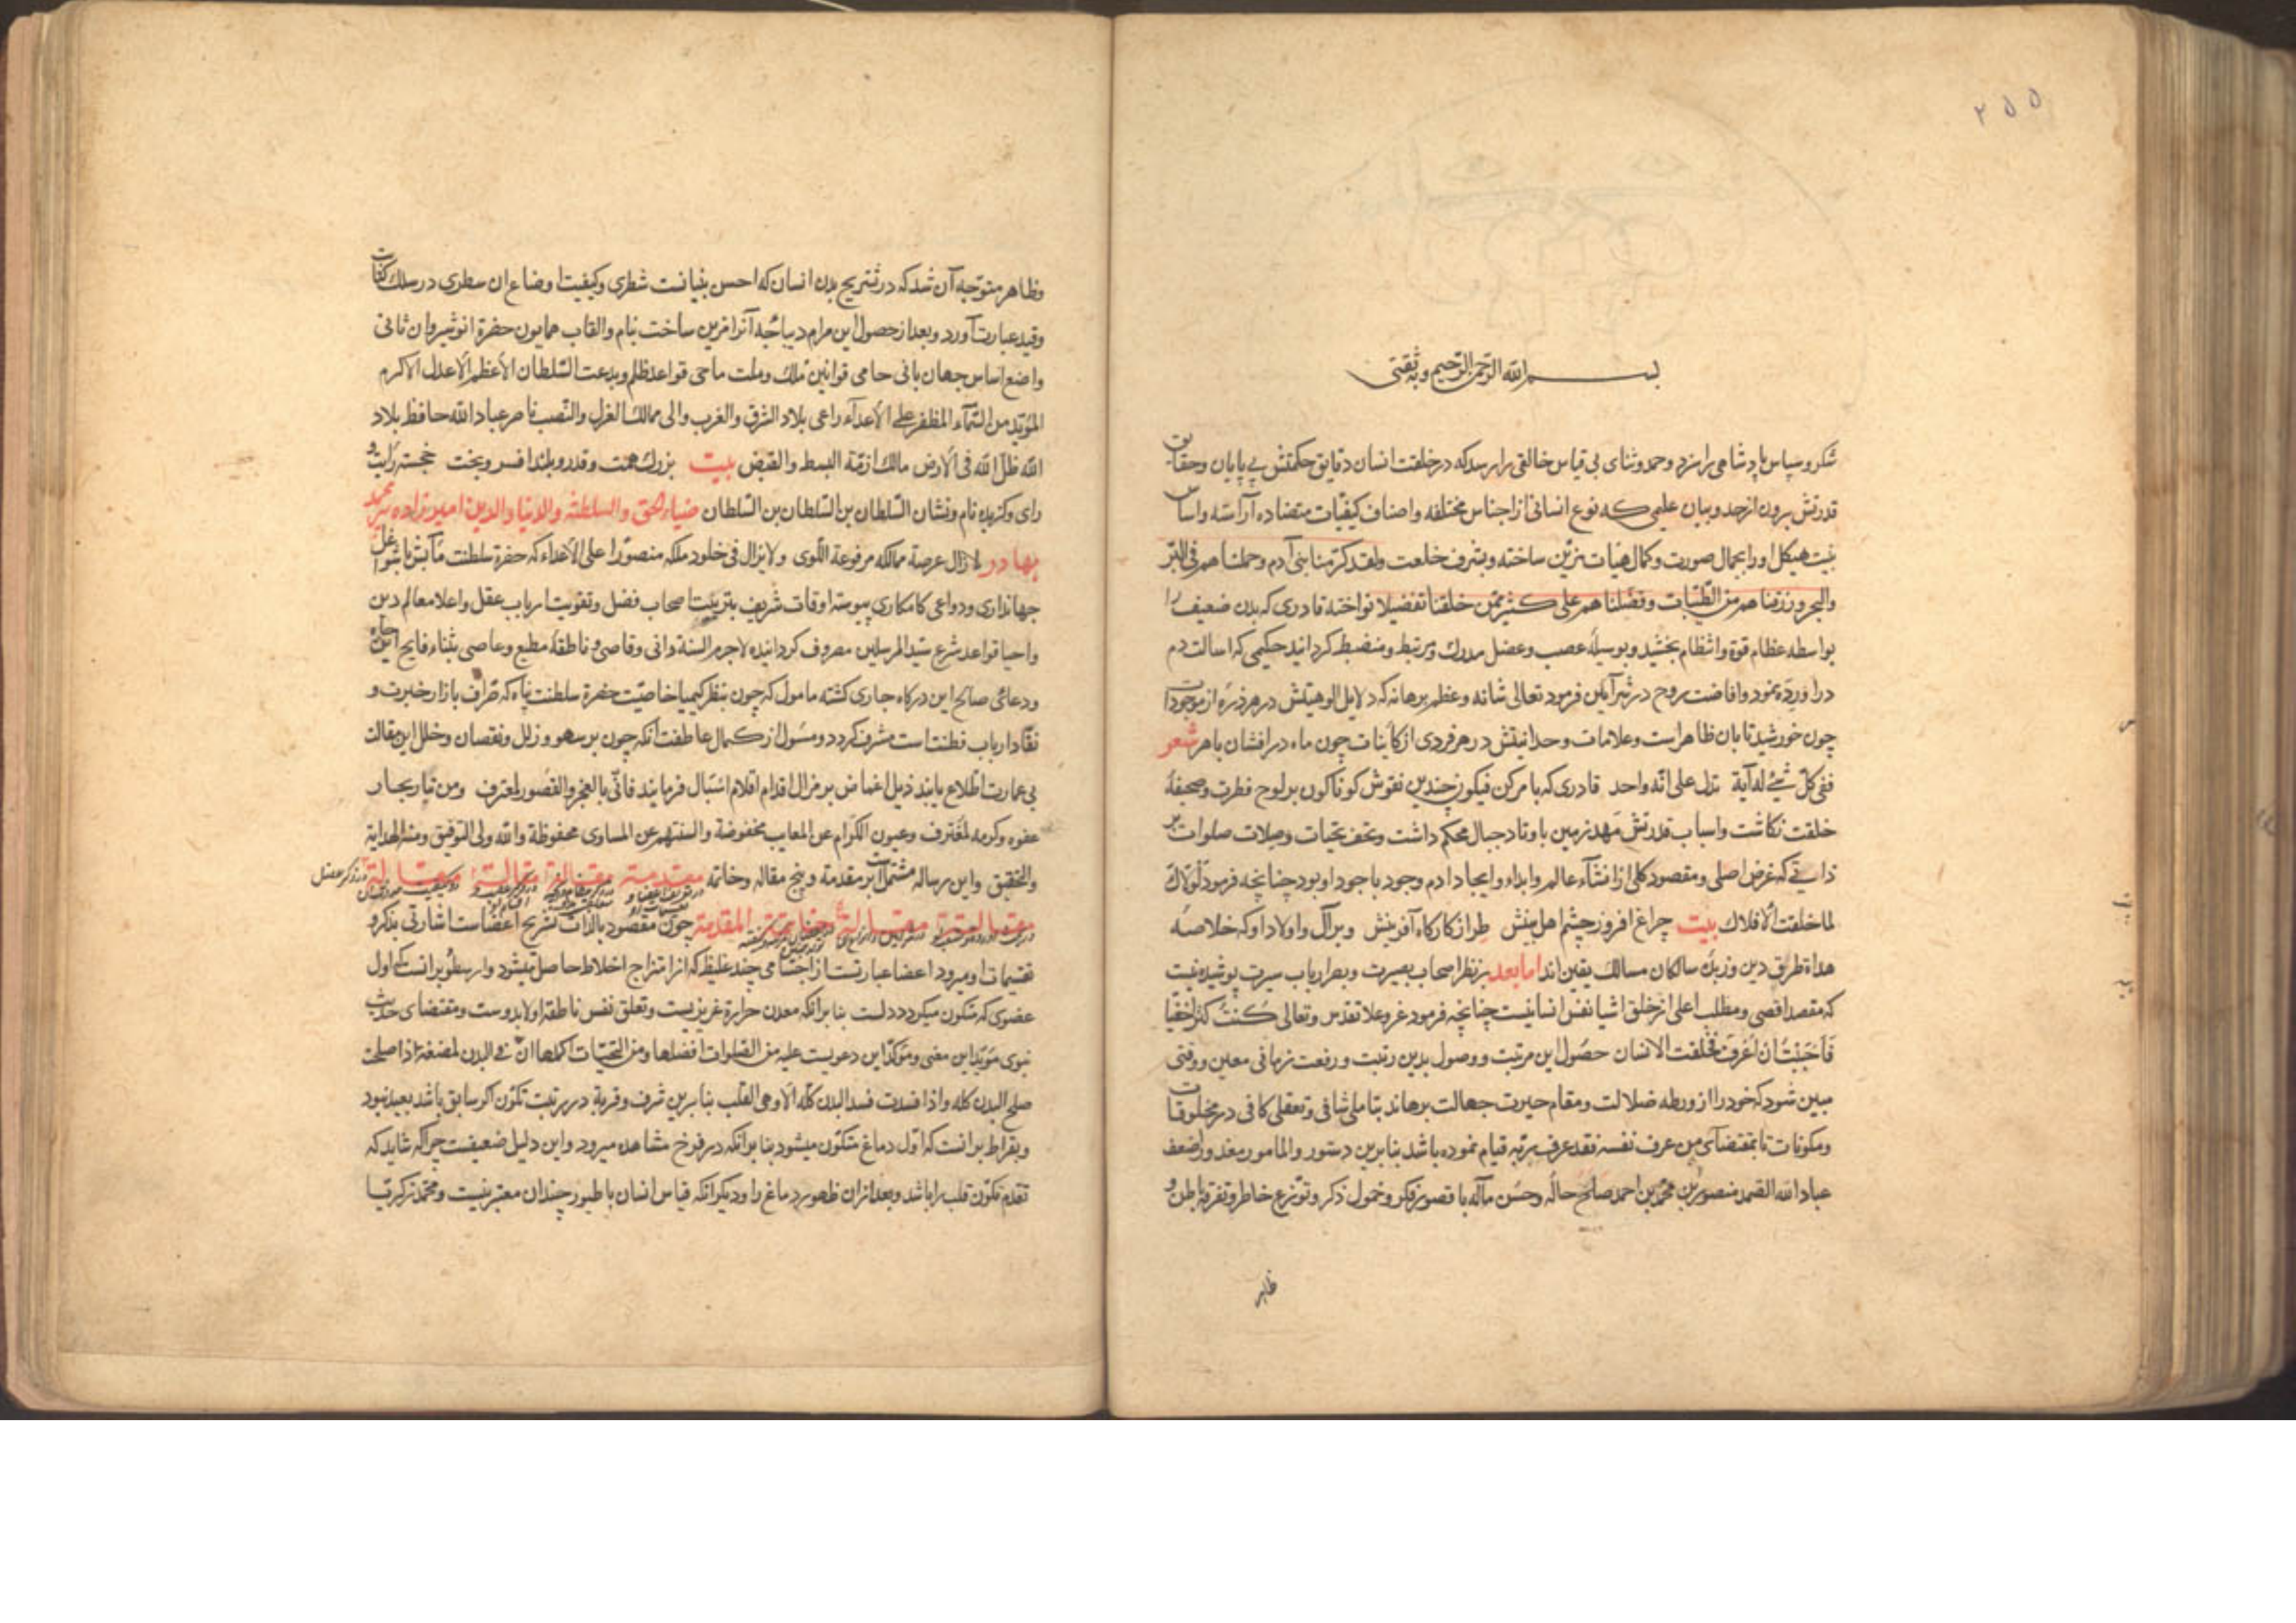 ٢٥٥
بسم الله الرحمن الرحیم وبه ثقتی
شکر و سپاس پادشاهی را سزد و حمد و ثنای بی قیاس خالقی را رسد که در خلقت انسان دقایق حکمتش بی پایان و حقایق
قدرتش برون از حد و بیان علیمی که نوع انسانی از اجناس مختلفه و اصناف کیفیات متضاده آراسته و اساس
بنیت هیکل اورا بجمال صورت و کمال هیات تزیین ساخته و بشرف خلعت ولقد کرمنا بنی آدم وحملناهم فی البر
والبحر ورزقناهم من الطیبات وفضلناهم علی کثیر ممن خلقنا تفضیلا نواخته قادری که بدن ضعیف را
بواسطه عظام قوة و انتظام بخشید و بوسیلهٔ عصب و عضل مدرک و مرتبط و منضبط کردانید حکیمی که اسالت دم
در اورده نمود و افاضت روح در شرآیین فرمود تعالی شانه وعظم برهانه که دلایل الوهیتش در هر ذره از موجودات
چون خورشید تابان ظاهرست و علامات وحدانیتش در هر فردی از کاینات چون ماه درافشان باهر شعر
ففی کل شیء له آیة تدل علی انه واحد قادری که بامر کن فیکون چندین نقوش کوناکون بر لوح فطرت و صحیفهٔ
خلقت نکاشت و اسباب قدرتش مهد زمین باوتاد جبال محکم داشت و تحف تحیات و صلات صلوات بر
ذاتی که غرض اصلی و مقصود کلی از انشآء عالم و ابداء و ایجاد ادم وجود باجود او بود چنانچه فرمود لولاک
لما خلقت الافلاک بیت چراغ افروز چشم اهل بینش طراز کارکاه آفرینش و برآل و اولاد او که خلاصهٔ
هداة طریق دین و زبدهٔ سالکان مسالک یقین اند اما بعد بر نظر اصحاب بصیرت و بصر ارباب سیرت پوشیده نیست
که مقصد اقصی و مطلب اعلی از خلق اشیا نفس انسانیست چنانچه فرمود عز وعلا تقدس وتعالی کنت کنزا خفیا
فاحببت ان اعرف فخلقت الانسان حصول این مرتبت و وصول بدین رتبت و رفعت زمانی معین و وقتی
مبین شود که خود را از ورطه ضلالت و مقام حیرت جهالت برهاند بتاملی شافی و تعقلی کافی در مخلوقات
و مکونات تا بمقتضآی من عرف نفسه فقد عرف ربه قیام نموده باشد بنابرین دستور والمامور معذور اضعف
عباد الله الصمد منصور بن محمد بن احمد صلح حاله وحسن مآله با قصور فکر و خمول ذکر و توزع خاطر و تفرقهٔ باطن و
ظاهر
وظاهر متوجه آن شد که در تشریح بدن انسان که احسن بنیانست شطری و کیفیت اوضاع ان سطری در سلک کتابت
و قید عبارت آورد و بعد از حصول این مرام دیباجه آنرا مزین ساخت بنام و القاب همایون حضرة انوشیروان ثانی
واضع اساس جهان بانی حامی قوانین ملک و ملت ماحی قواعد ظلم و بدعت السلطان الاعظم الاعدل الاکرم
المؤید من السمآء المظفر علی الاعدآء راعی بلاد الشرق والغرب والی ممالک العزل والنصب ناصر عباد الله حافظ بلاد
الله ظل الله فی الارض مالک ازمة البسط والقبض بیت بزرک همت و قدر و بلند افسر و بخت خجسته رایت و
رای و کزیده نام و نشان السلطان بن السلطان بن السلطان ضیاء الحق والسلطنة والدنیا والدین امیرزاده پیر محمد
بهادر لا زال عرصة ممالکه مرفوعة اللوی ولا یزال فی خلود ملکه منصورا علی الاعداء که حضرة سلطنت مآبش با شواغل
جهانداری و دواعی کامکاری پیوسته اوقات شریف بتربیت اصحاب فضل و تقویت ارباب عقل و اعلا معالم دین
و احیا قواعد شرع سید المرسلین مصروف کردانیده لاجرم السنهٔ دانی و قاصی و ناطقهٔ مطیع و عاصی بثناء فایح این جاه
و دعائی صالح این درکاه جاری کشته مامول که چون بنظر کیمیا خاصیت حضرة سلطنت پناه که صراف بازار خبرت و
نقاد ارباب فطنت است مشرف کردد و مسؤل از کمال عاطفت آنکه چون بر سهو و زلل و نقصان و خلل این مقالت
بی عمارت اطلاع یابند ذیل اغماض بر مزال اقدام اقلام اسبال فرمایند فانی بالعجز والقصور لمعترف ومن تیار بحار
عفوه وکرمه لمغترف وعیون الکرام عن المعایب مخفوضة والسنتهم عن المساوی محفوظة والله ولی التوفیق ومنه الهدایة
والتحقیق و این رساله مشتمل است بر مقدمه و پنج مقاله و خاتمه مقدمة مقالة مقالة مقالة در ذکر عضل
مقالة مقالة خاتمة المقدمة چون مقصود بالذات تشریح اعضاست اشارتی بذکر و
تقسیمات او میرود اعضا عبارتست از اجسامی چند غلیظ که از امتزاج اخلاط حاصل میشود و ارسطو برانست که اول
عضوی که متکون میکردد دلست بنا برانکه معدن حرارة غریزیست و تعلق نفس ناطقه اولا بدوست و مقتضای حدیث
نبوی مؤید این معنی و مؤکد این دعویست علیه من الصلوات افضلها ومن التحیات اکملها ان فی البدن لمضغة اذا صلحت
صلح البدن کله واذا فسدت فسد البدن کله الا وهی القلب بنابرین شرف و قربة در رتبت تکون اکر سابق باشد بعید نبود
و بقراط برانست که اول دماغ متکون میشود بنا برانکه در فروخ مشاهده میرود و این دلیل ضعیفست چراکه شاید که
تقدم تکون قلب را باشد و بعد ازان ظهور دماغ را و دیکر انکه قیاس انسان با طیور چندان معتبر نیست و محمد زکریا